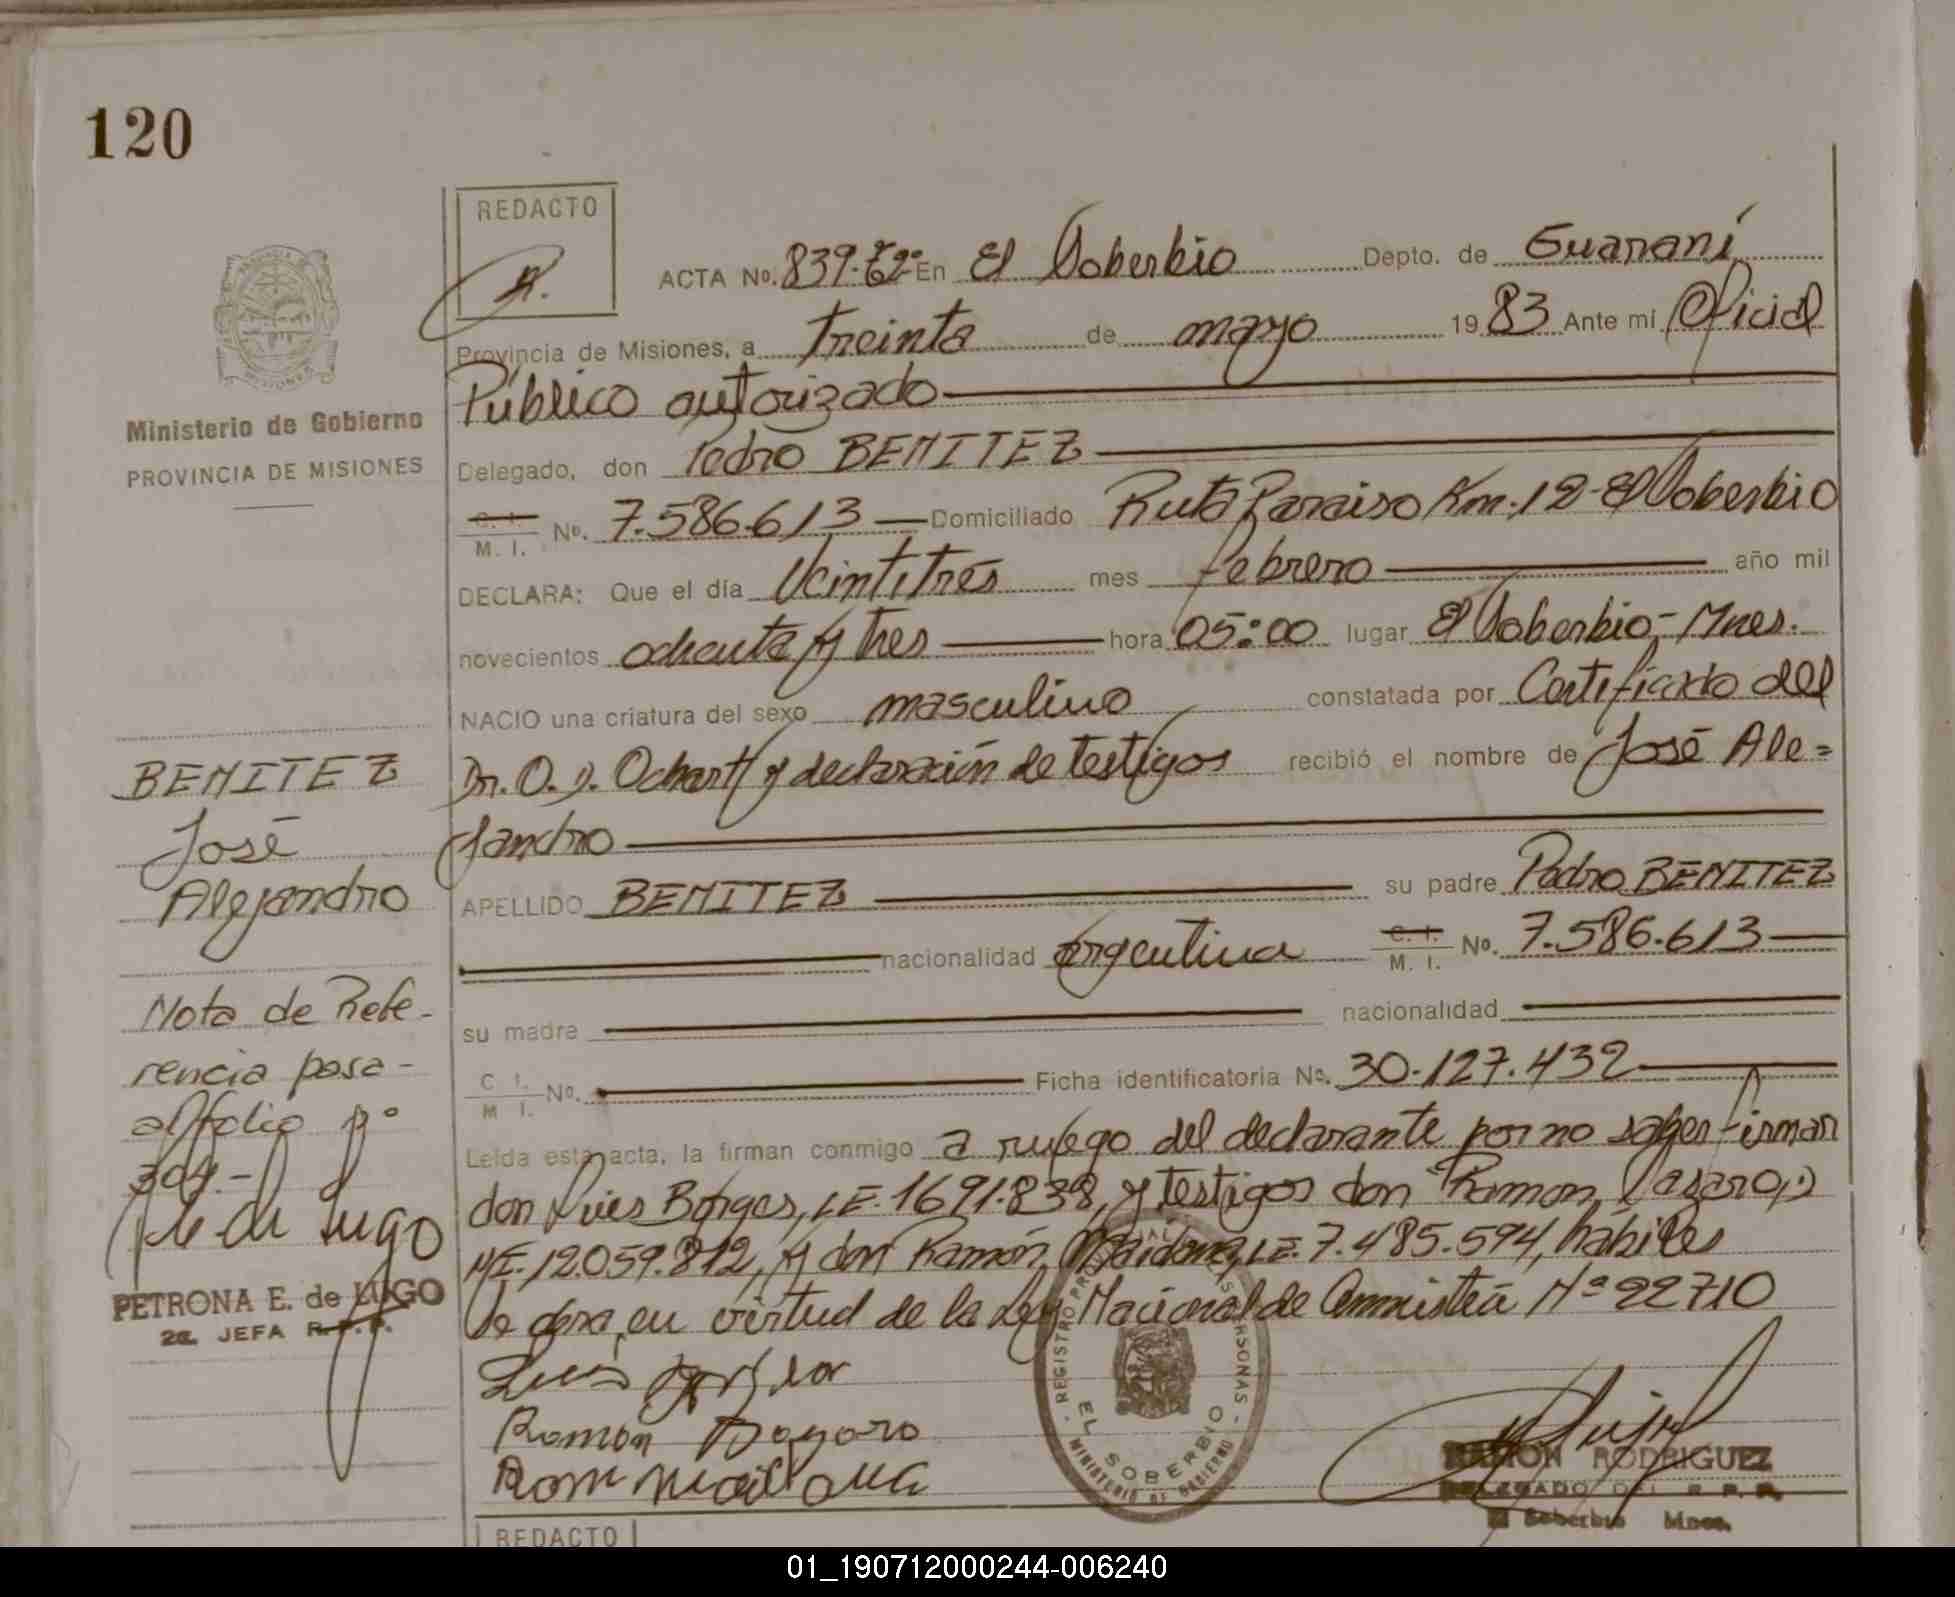 120
REDACTO
ACTA No. 839.Tº2º En El Soberbio Depto. de Guaraní
Provincia de Misiones, a treinta de mayo 1983 Ante mí Oficial
Público autorizado
Ministerio de Gobierno
PROVINCIA DE MISIONES
Delegado, don Pedro BENITEZ
C. I. M. I. No. 7.586.613 Domiciliado Ruta Paraiso Km. 12-El Soberbio
DECLARA: Que el día Veintitrés mes febrero año mil
novecientos ochenta y tres hora 05:00 lugar El Soberbio-Mnes.
NACIO una criatura del sexo masculino constatada por Certificado del
Dr. O. D. Ochart y declaración de testigos recibió el nombre de José Ale=
jandro
APELLIDO BENITEZ su padre Pedro BENITEZ
nacionalidad argentina C. I. M. I. No. 7.586.613
su madre nacionalidad
C I. M I. No. Ficha identificatoria No. 30.127.432
Leída esta acta, la firman conmigo a ruego del declarante por no saber firmar
don Luis Borges, LE. 1691.838, y testigos don Ramon Lazaro,
ME. 12.059.812, y don Ramón Maidana, LE. 7.485.594, hábiles
Se labra en virtud de la Ley Nacional de Amnistía Nº 22710
BENITEZ
José
Alejandro
Nota de Refe-
rencia pasa-
al folio nº
304.-
PETRONA E. de LUGO
2a. JEFA R.P.P.
Luis
Ramón
REGISTRO PROVINCIAL DE LAS PERSONAS
EL SOBERBIO
MINISTERIO DE GOBIERNO
RAMON RODRIGUEZ
DELEGADO DEL R. P. P.
El Soberbio Mnes.
REDACTO
01_190712000244-006240